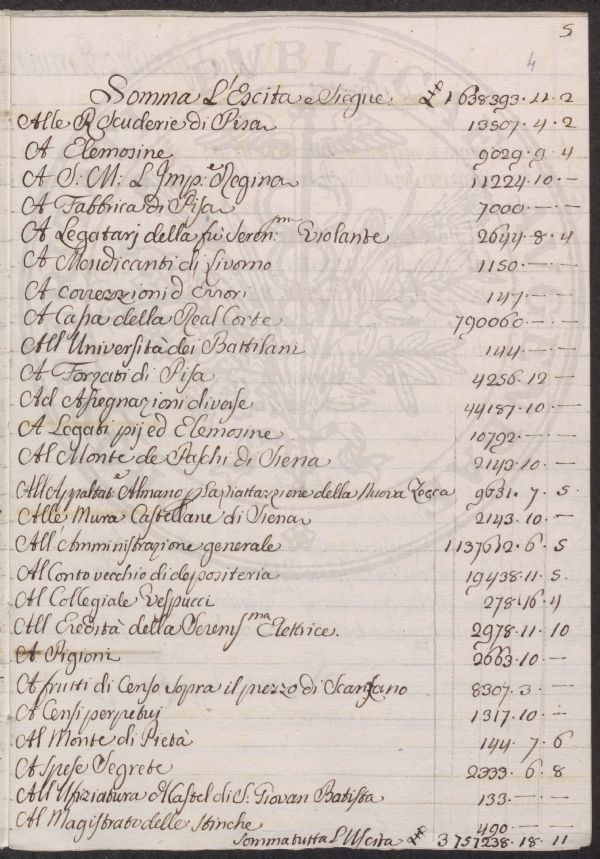 5
4
Somma L'Escita e Siegue £ 1638393.11.2
Alle R Scuderie di Pisa 13507.4.2
A Elemosine 9029.9.4
A S: M: L'Imp:e Regina 11224.10.—
A Fabbrica di Pisa 7000.—.—
A Legatarj della fù Seren:ma Violante 2644.8.4
A Mendicanti di Livorno 1150.—.—
A correzzioni d Errori 147.—.—
A Casa della Real Corte 790060.—.—
All Università dei Battilani 144.—.—
A Forzati di Pisa 4256.12.—
Ad Assegnazioni diverse 44187.10.—
A Legati pij ed Elemosine 10792.—.—
Al Monte de Paschi di Siena 2143.10.—
All Appaltat:e Almano p La piattazzione della Nuova Zecca 9631.7.5
Alle Mura Castellane di Siena 2143.10.—
All Amministrazione generale 1137612.6.5
Al Conto vecchio di depositeria 19438.11.5
Al Collegiale Vespucci 278.16.4
All Eredità della Serenisma Elettrice. 2978.11.10
A Pigioni 2663.10.—
A frutti di Censo sopra il prezzo di Scanzano 8307.3.—
A Censi perpetui 1317.10.—
Al Monte di Pietà 144.7.6
A Spese Segrete 2333.6.8
All Ufiziatura di Castel di S: Giovan Batista 133.—.—
Al Magistrato delle Stinche 490.—.—
Somma tutta L'Uscita £ 3757238.18.11
PVBLICA